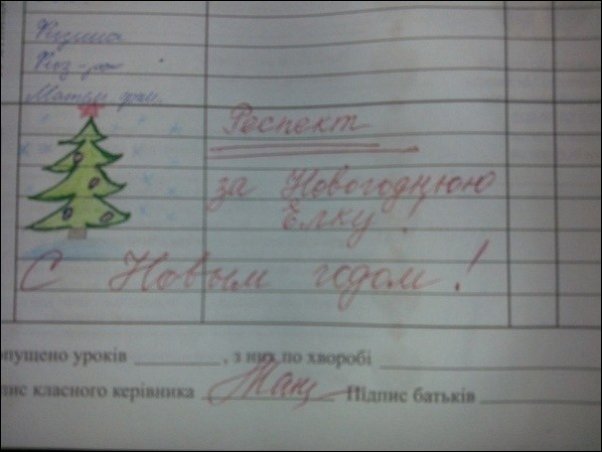 Физика
Физ-ра
Респект
за Новогоднюю
Ёлку!
С Новым годом!
опущено уроків ________, з них по хворобі
пис класного керівника ________ Підпис батьків